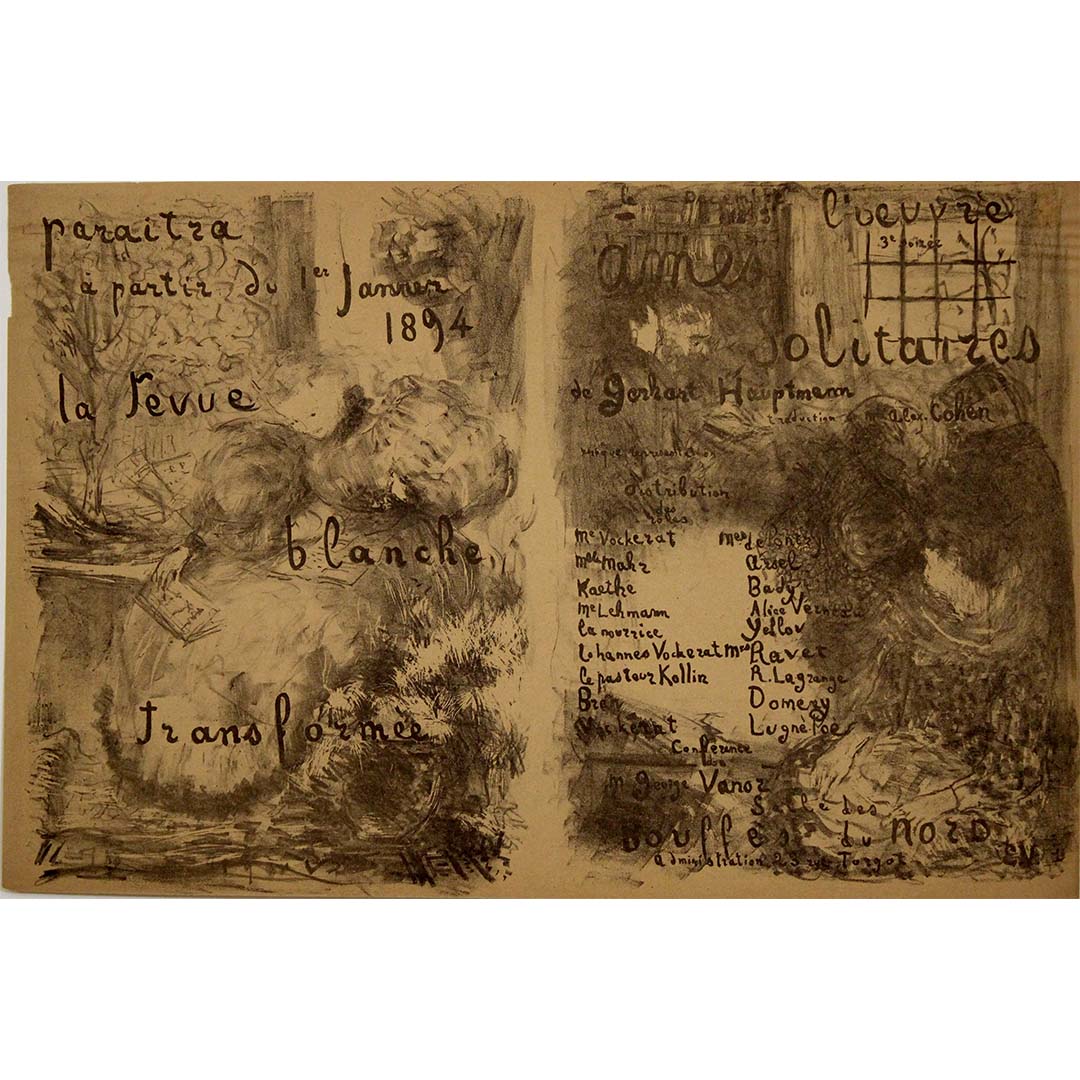 paraitra
à partir du 1er Janvier
1894
la revue
blanche
transformée
l'oeuvre
3e soirée
âmes
solitaires
de Gerhart Hauptmann
traduction de Mr Alex. Cohen
unique représentation
distribution
des
rôles
Me Vockerat Mes
Melle Mahr
Kaethe Bady
Me Lehmann Alice
la nourrice Yellov
Iohannes Vockerat Mrs Ravet
le pasteur Kollin R. Lagrange
Domeny
Vockerat Lugné Poe
Conférence
de
Mr George Vanor
Salle des
bouffes du NORD
administration 23 rue Turgot
E.V.